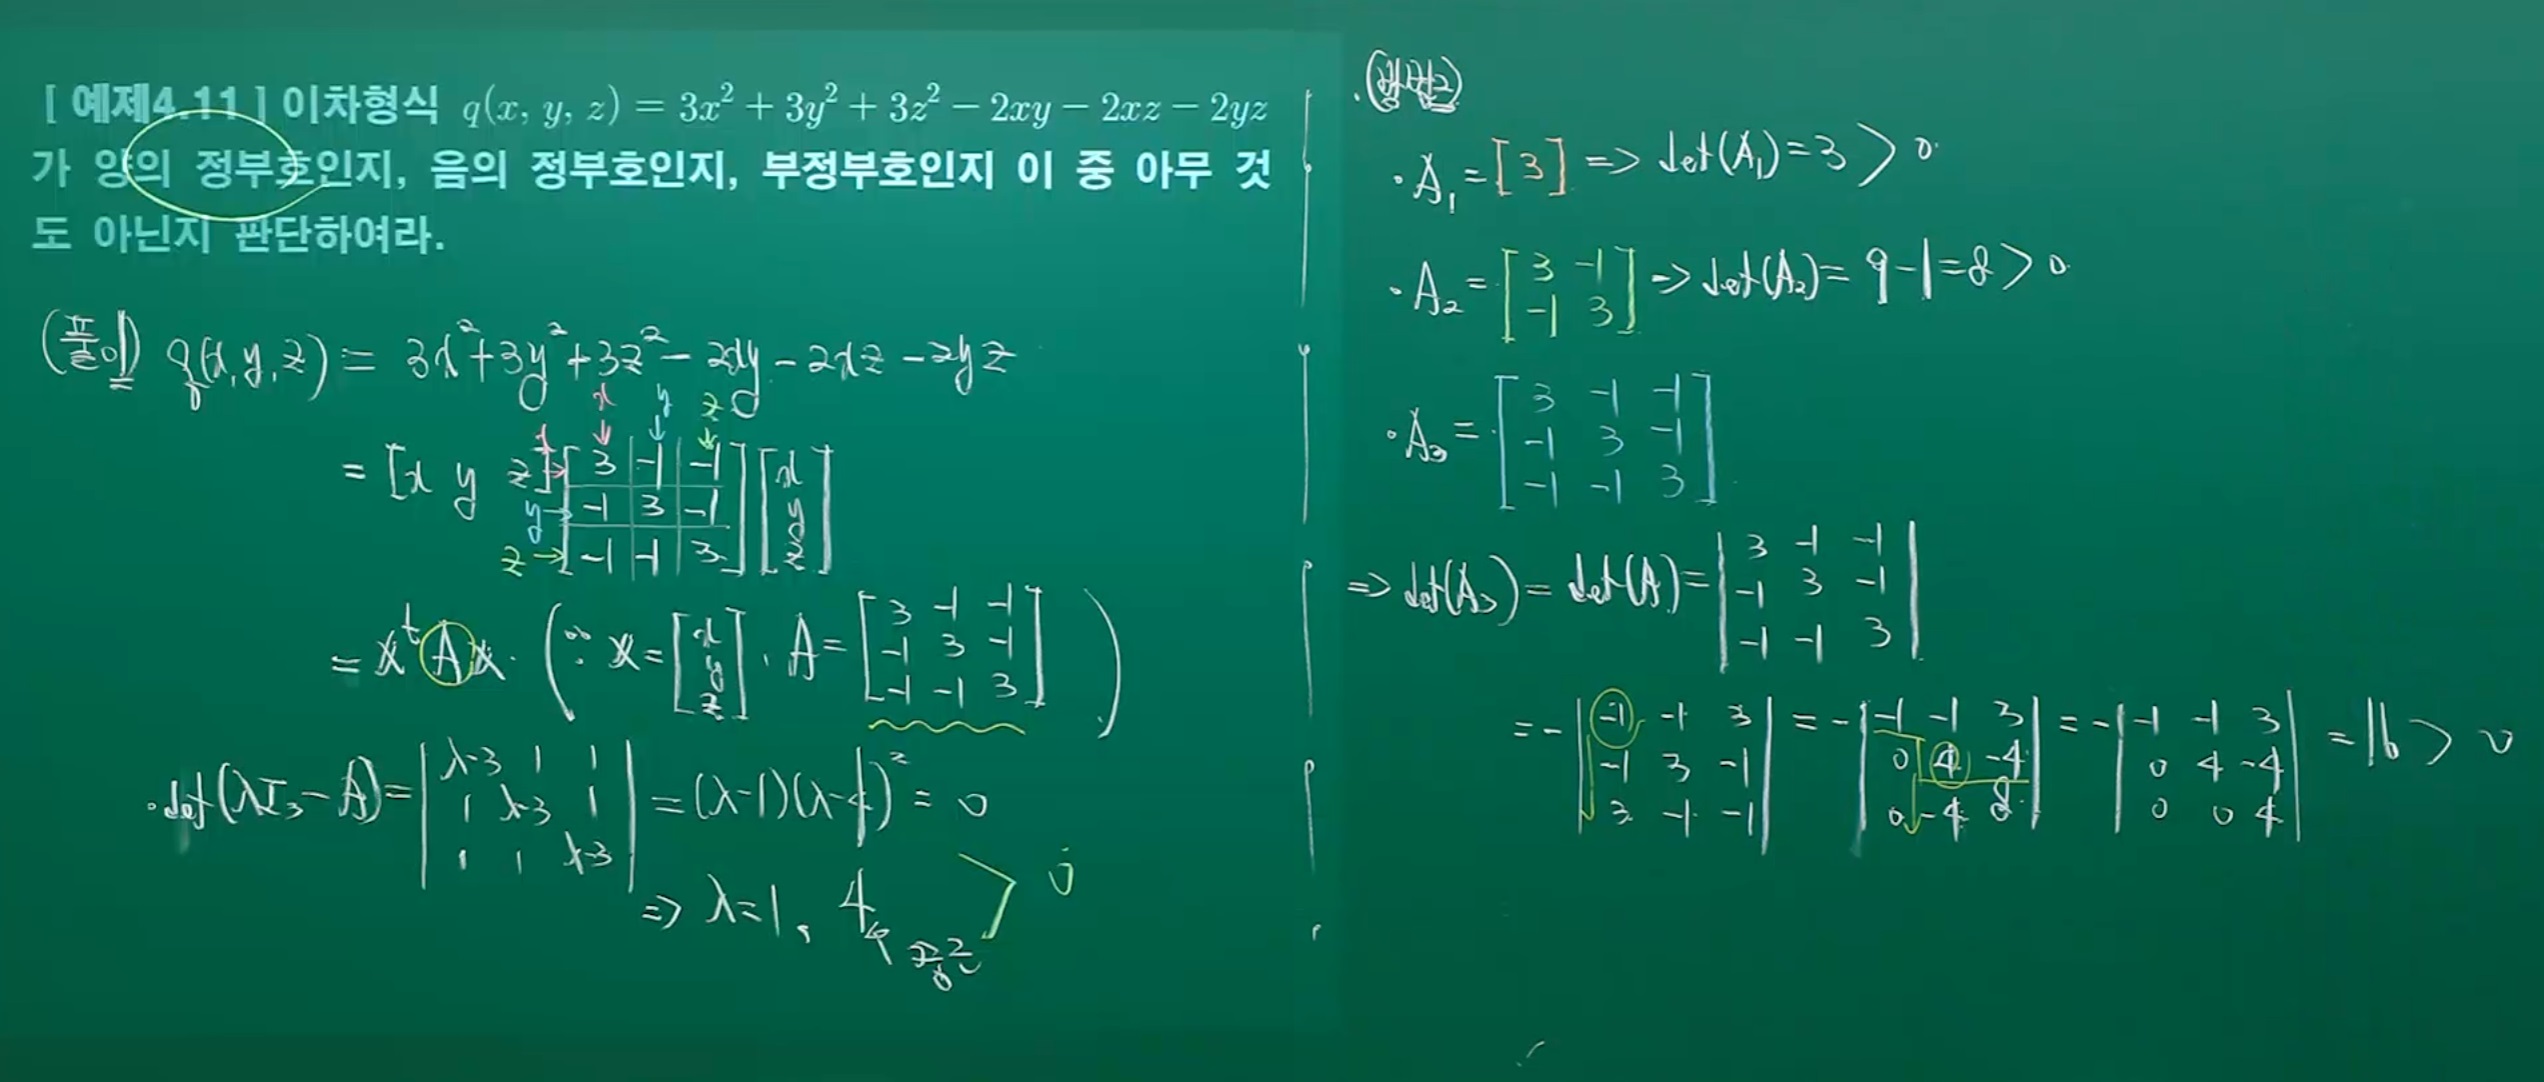 [ 예제4.11 ] 이차형식 q(x, y, z) = 3x² + 3y² + 3z² − 2xy − 2xz − 2yz
가 양의 정부호인지, 음의 정부호인지, 부정부호인지 이 중 아무 것
도 아닌지 판단하여라.
(풀이) q(x, y, z) = 3x² + 3y² + 3z² − 2xy − 2xz − 2yz
x y z
= [x y z] [3 -1 -1] [x]
x → y → [-1 3 -1] [y]
z → [-1 -1 3] [z]
= xᵗAx. (∵ x = [x y z], A = [3 -1 -1
-1 3 -1
-1 -1 3])
· det(λI₃ − A) = |λ-3 1 1| = (λ-1)(λ-4)² = 0
|1 λ-3 1|
|1 1 λ-3|
=> λ = 1, 4 > 0
중2
· A₁ = [3] => det(A₁) = 3 > 0
· A₂ = [3 -1] => det(A₂) = 9 - 1 = 8 > 0
[-1 3]
· A₃ = [3 -1 -1]
[-1 3 -1]
[-1 -1 3]
=> det(A₃) = det(A) = |3 -1 -1|
|-1 3 -1|
|-1 -1 3|
= - |-1 -1 3| = - |-1 -1 3| = - |-1 -1 3| = 16 > 0
|-1 3 -1| |0 4 -4| |0 4 -4|
|3 -1 -1| |0 -4 8| |0 0 4|